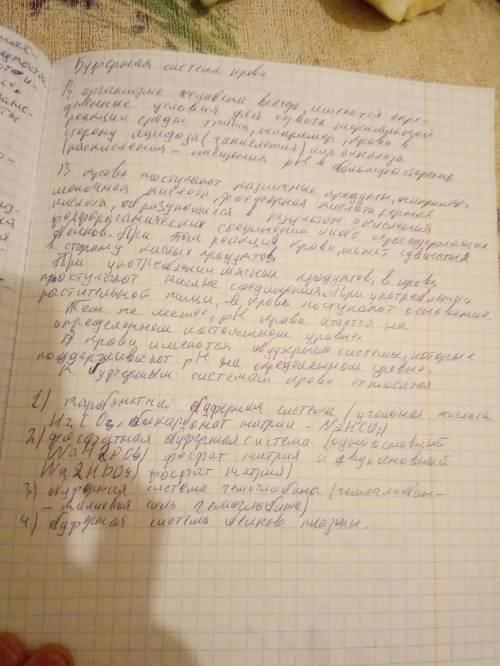 Буферная система крови
В организме человека всегда имеются опре-
деленные условия для сдвига нормальной
реакции среды ткани, например, крови в
сторону ацидоза (закисления) или алкалоза
(раскисления - смещения pH в большую сторону
В кровь поступают различные продукты, например,
молочная кислота, фосфорная кислота, серная
кислота, образующиеся в результате окисления
фосфорорганических соединений либо серосодержащих
белков. При этом реакция крови может сдвигаться
в сторону кислых продуктов.
При употреблении мясных продуктов, в кровь
поступают кислые соединения. При употреблении
растительной пищи, в кровь поступают основания.
Тем не менее, pH крови остается на
определенном постоянном уровне.
В крови имеются буферные системы, которые
поддерживают pH на определенном уровне.
К буферным системам крови относятся
1) карбонатная буферная система (угольная кислота
H2CO3, бикарбонат натрия - NaHCO3)
2) фосфатная буферная система (одноосновный
(NaH2PO4) фосфат натрия и двухосновный
Na2HPO4) фосфат натрия)
3) буферная система гемоглобины (гемоглобин-
- калиевая соль гемоглобина)
4) буферная система белков плазмы.